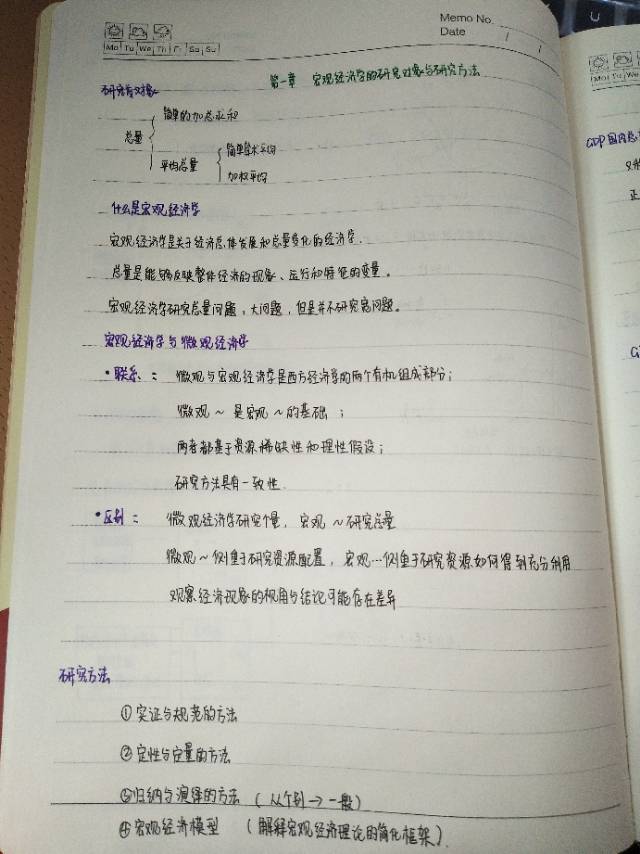 Memo No.
Date / /
Mo Tu We Th Fr Sa Su
第一章 宏观经济学的研究对象与研究方法
研究对象
总量
简单的加总求和
平均总量
简单算术平均
加权平均
什么是宏观经济学
宏观经济学是关于经济总体发展和总量变化的经济学.
总量是能够反映整体经济的现象、运行和特征的变量。
宏观经济学研究总量问题,大问题,但是并不研究总问题。
宏观经济学与微观经济学
•联系: 微观与宏观经济学是西方经济学的两个有机组成部分;
微观~是宏观~的基础;
两者都基于资源稀缺性和理性假设;
研究方法具有一致性.
•区别: 微观经济学研究个量,宏观~研究总量
微观~侧重于研究资源配置,宏观…侧重于研究资源如何得到充分利用
观察经济现象的视角与结论可能存在差异
研究方法
①实证与规范的方法
②定性与定量的方法
③归纳与演绎的方法 (从个别→一般)
④宏观经济模型 (解释宏观经济理论的简化框架).
Mo Tu We
GDP国内总